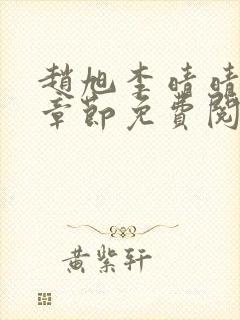 趙旭李晴晴
章節免費閱
黃紫軒